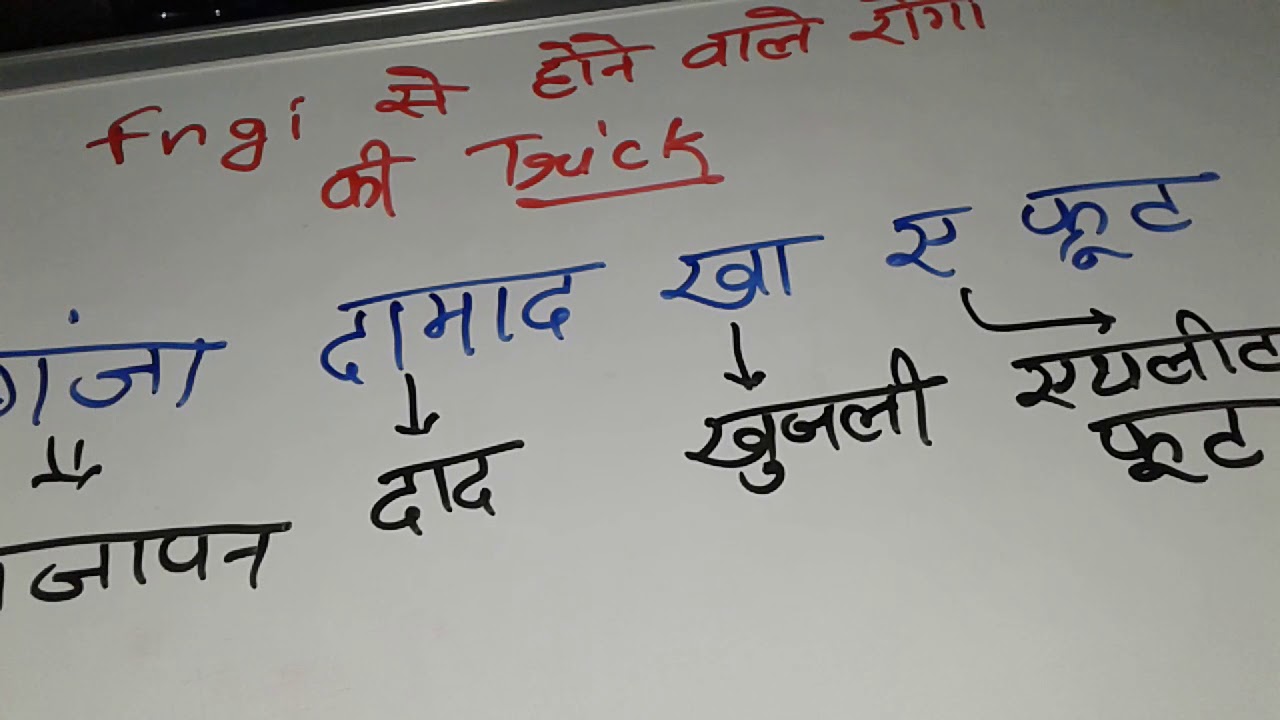 fngi से होने वाले रोगा
की Trick
गंजा दामाद खा ए फूट
जापन दाद खुजली एथलीट
फूट